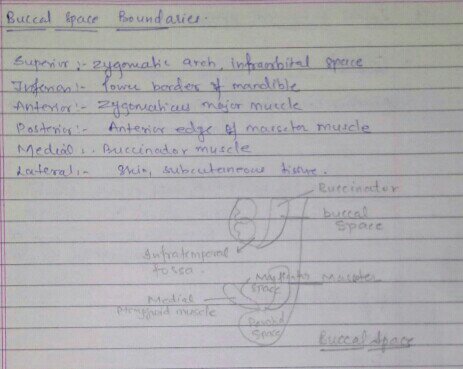 Buccal Space Boundaries.
Superior :- Zygomatic arch, infraorbital space
Inferior :- Lower border of mandible
Anterior :- Zygomaticus major muscle
Posterior :- Anterior edge of masseter muscle
Medial :- Buccinator muscle
Lateral :- Skin, subcutaneous tissue.
Buccinator
buccal
Space
Infratemporal
fossa.
Masseter
Space
Masseter
Medial
Pterygoid muscle
Parotid
Space
Buccal Space